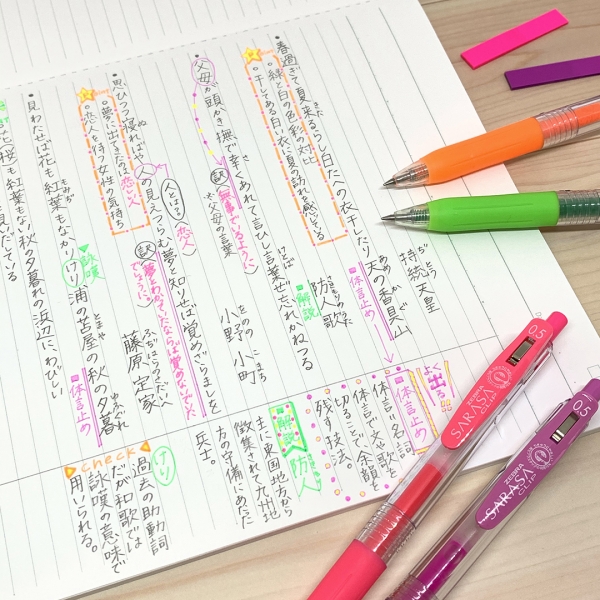 春過ぎて夏来るらし白たへの衣干したり天の香具山
きた
あめ
かぐ
体言止め
持統天皇
ぢとう
緑と白の色彩の対比
干してある白い衣に夏の訪れを感じている
父母が頭かき撫で幸くあれて言ひし言葉ぜ忘れかねつる
けとば
防人歌
さきもりのうた
解説
訳 無事でいるように
父母の言葉
思ひつつ寝ればや人の見えつらむ夢と知りせば覚めざらましを
ぬ
小野 小町
をのの こまち
人とはる 恋人
夢に出てきたのは恋しい人
恋人を待つ女性の気持ち
訳 夢とわかっていたならば覚めなかったでしょうに
見わたせば花も紅葉もなかりけり浦の苫屋の秋の夕暮
もみぢ
とまや
ゆふぐれ
詠嘆
体言止め
藤原 定家
ふぢはらのさだいへ
桜も紅葉もない秋の夕暮れの浜辺にわびしい
よく出る!!
体言止め
体言=名詞
体言で文や歌を
切ることで、余韻を
残す技法。
解説 防人
主に東国地方から
徴集されて九州地
方の守備にあたった
兵士。
けり
過去の助動詞
check
だが和歌では
詠嘆の意味で
用いられる。
0.5
ZEBRA
SARASA
CLIP
0.5
ZEBRA
SARASA
CLIP